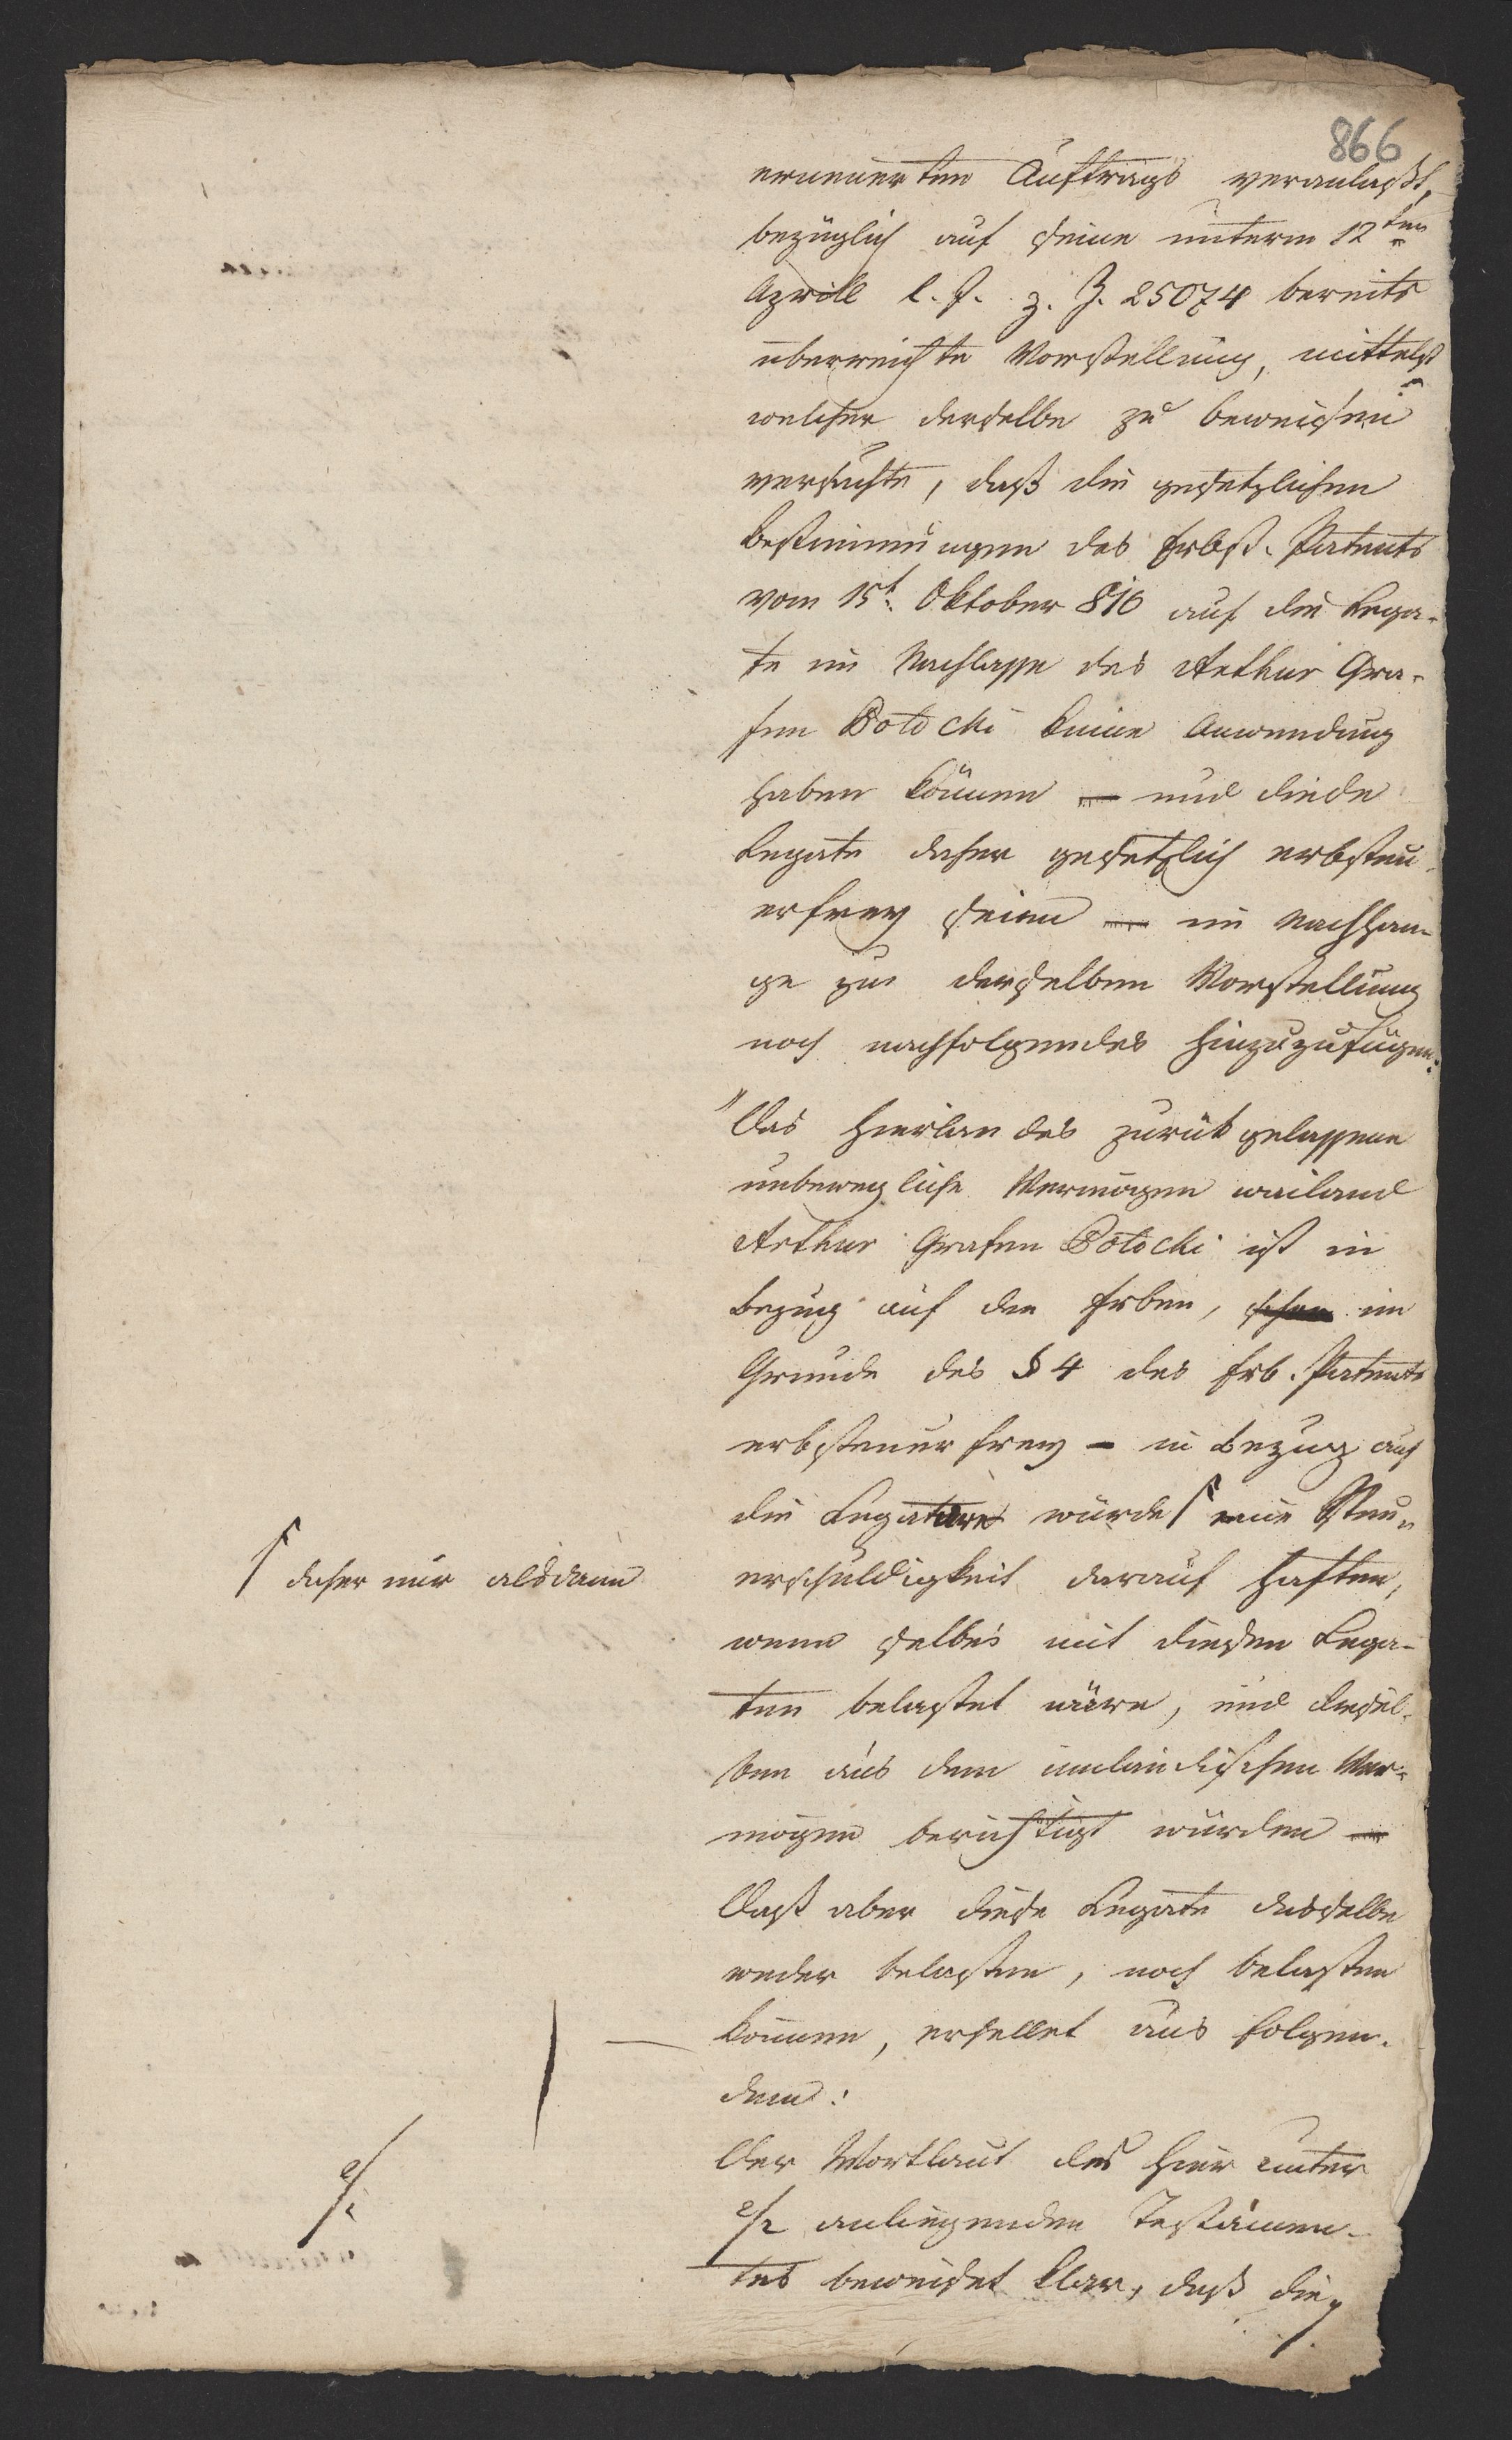 866
erneuerten Auftrags veranlaßt,
bezüglich auf seine unterm 12ten
Aprill l. J. z. Z. 25074 bereits
überreichte Vorstellung, mittelst
welcher derselbe zu beweisen
versuchte, daß die gesetzlichen
Bestimmungen des Erbst. Patents
vom 15t. Oktober 810 auf die Lega-
te im Nachlasse des Arthur Gra-
fen Potocki keine Anwendung
haben können — und diese
Legate daher gesetzlich erbsteu-
erfrey seien — im Nachhan-
ge zur derselben Vorstellung
noch nachfolgendes hinzuzufügen:
"Das hierlandes zurükgelassene
unbewegliche Vermögen weiland
Arthur Grafen Potocki ist in
Bezug auf den Erben, schon im
Grunde des § 4 des Erb. Patents
erbsteuerfrey – in Bezug auf
die Legatare würde ſ eine Steu-
ſ daher nur alsdann
erschuldigkeit darauf haften,
wenn selbes mit diesen Lega-
ten belastet wäre, und diesel-
ben aus dem inländischen Ver-
mögen berichtigt würden —
Daß aber diese Legate dasselbe
weder belasten, noch belasten
können, erhellet aus folgen-
dem:
Der Wortlaut des hier unter
2/2 anliegenden Testamen-
2/.
tes beweiset klar, daß die